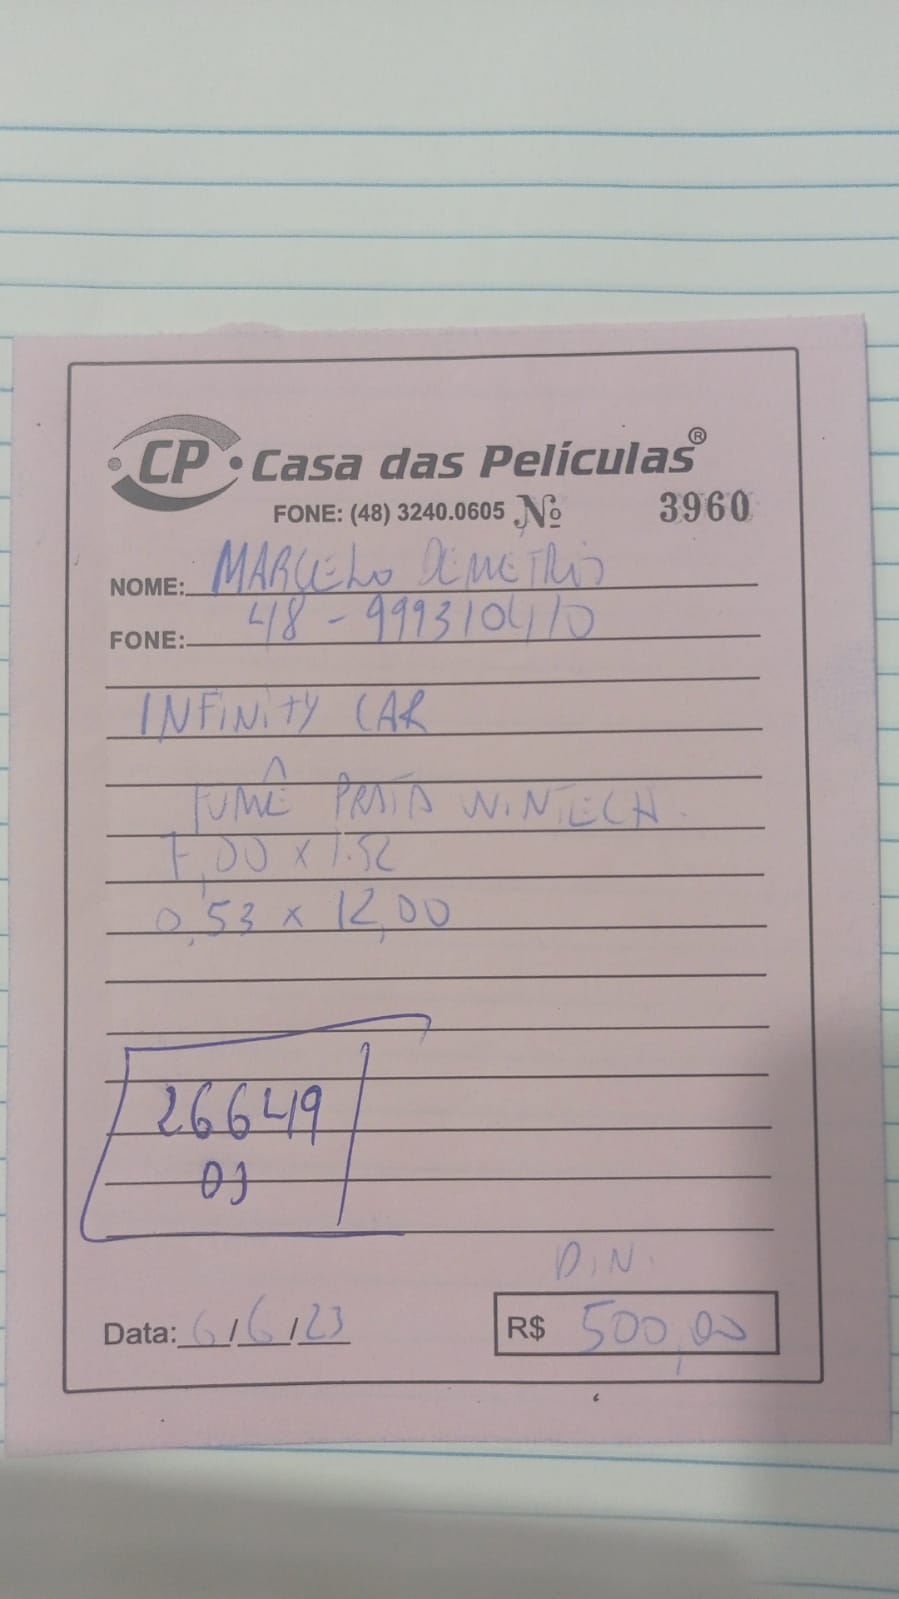 CP Casa das Películas®
FONE: (48) 3240.0605 Nº 3960
NOME: MARCELO DEMETRIO
FONE: 48 - 999310410
INFINITY CAR
FUMÊ PRATA WINTECH.
7,00 x 1.52
0,53 x 12,00
26649
03
DIN.
Data: 6/6/23 R$ 500,00